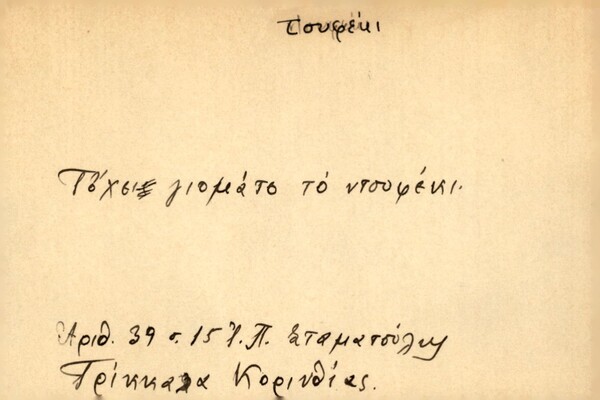 τουφέκι
Τὄχει γιομάτο τό ντουφέκι.
Ἀριθ. 39 σ. 15 Ἰ. Π. Σταματούλη
Τρίκκαλα Κορινθίας.